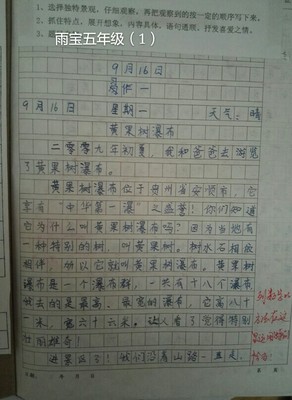 1、选择独特景观，仔细观察，再把观察到的按一定的顺序写下来。
2、抓住特点，展开想象，内容具体，语句通顺，抒发喜爱之情。
3、
雨宝五年级（1）
9月16日
习作一
9月16日 星期一 天气：晴
黄果树瀑布
二零零九年初夏，我和爸爸去游览
了黄果树瀑布。
黄果树瀑布位于贵州省安顺市，它
享有“中华第一瀑”之盛誉！你们知道
它为什么叫黄果树瀑布吗？因为当地有
一种特别的树，叫黄果树。树水石相依
相伴，所以它就叫黄果树瀑布。黄果树
瀑布是一个瀑布群，一共有十八个瀑布
我去的是最高、最宽的瀑布，它高八十
一米，宽六十六米。让人看了觉得特别
的雄奇！
进景区了！我们沿着山路一直走，